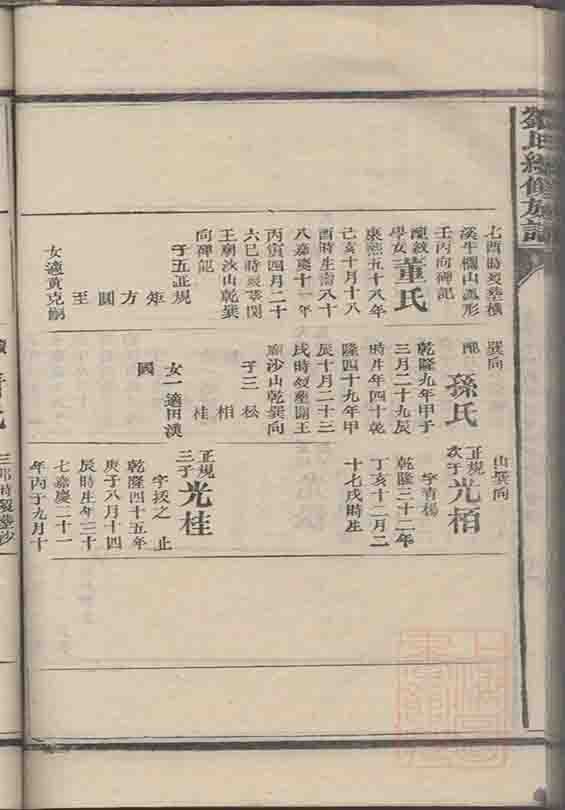 氏續修族譜
七酉時歿塟橫
溪牛欄山瓜形
壬丙向碑記
董氏
學女
康熙五十八年
己亥十月十八
酉時生壽八十
八嘉慶十一年
丙寅四月二十
六巳時歿塟関
王廟沙山乾巽
向碑記
子五正規
矩
方
圓
至
女適黃克嗣
巽向
配 孫氏
乾隆九年甲子
三月二十九辰
時生年四十乾
隆四十九年甲
辰十月二十三
戌時歿塟関王
廟沙山乾巽向
子三 松
栢
桂
女一適田漢
國
山巽向
正規次子光栢
字青楊
乾隆三十二年
丁亥十二月二
十七戌時生
正規三子光桂
字技之 止
乾隆四十五年
庚子八月十四
辰時生年三十
七嘉慶二十一
年丙子九月十